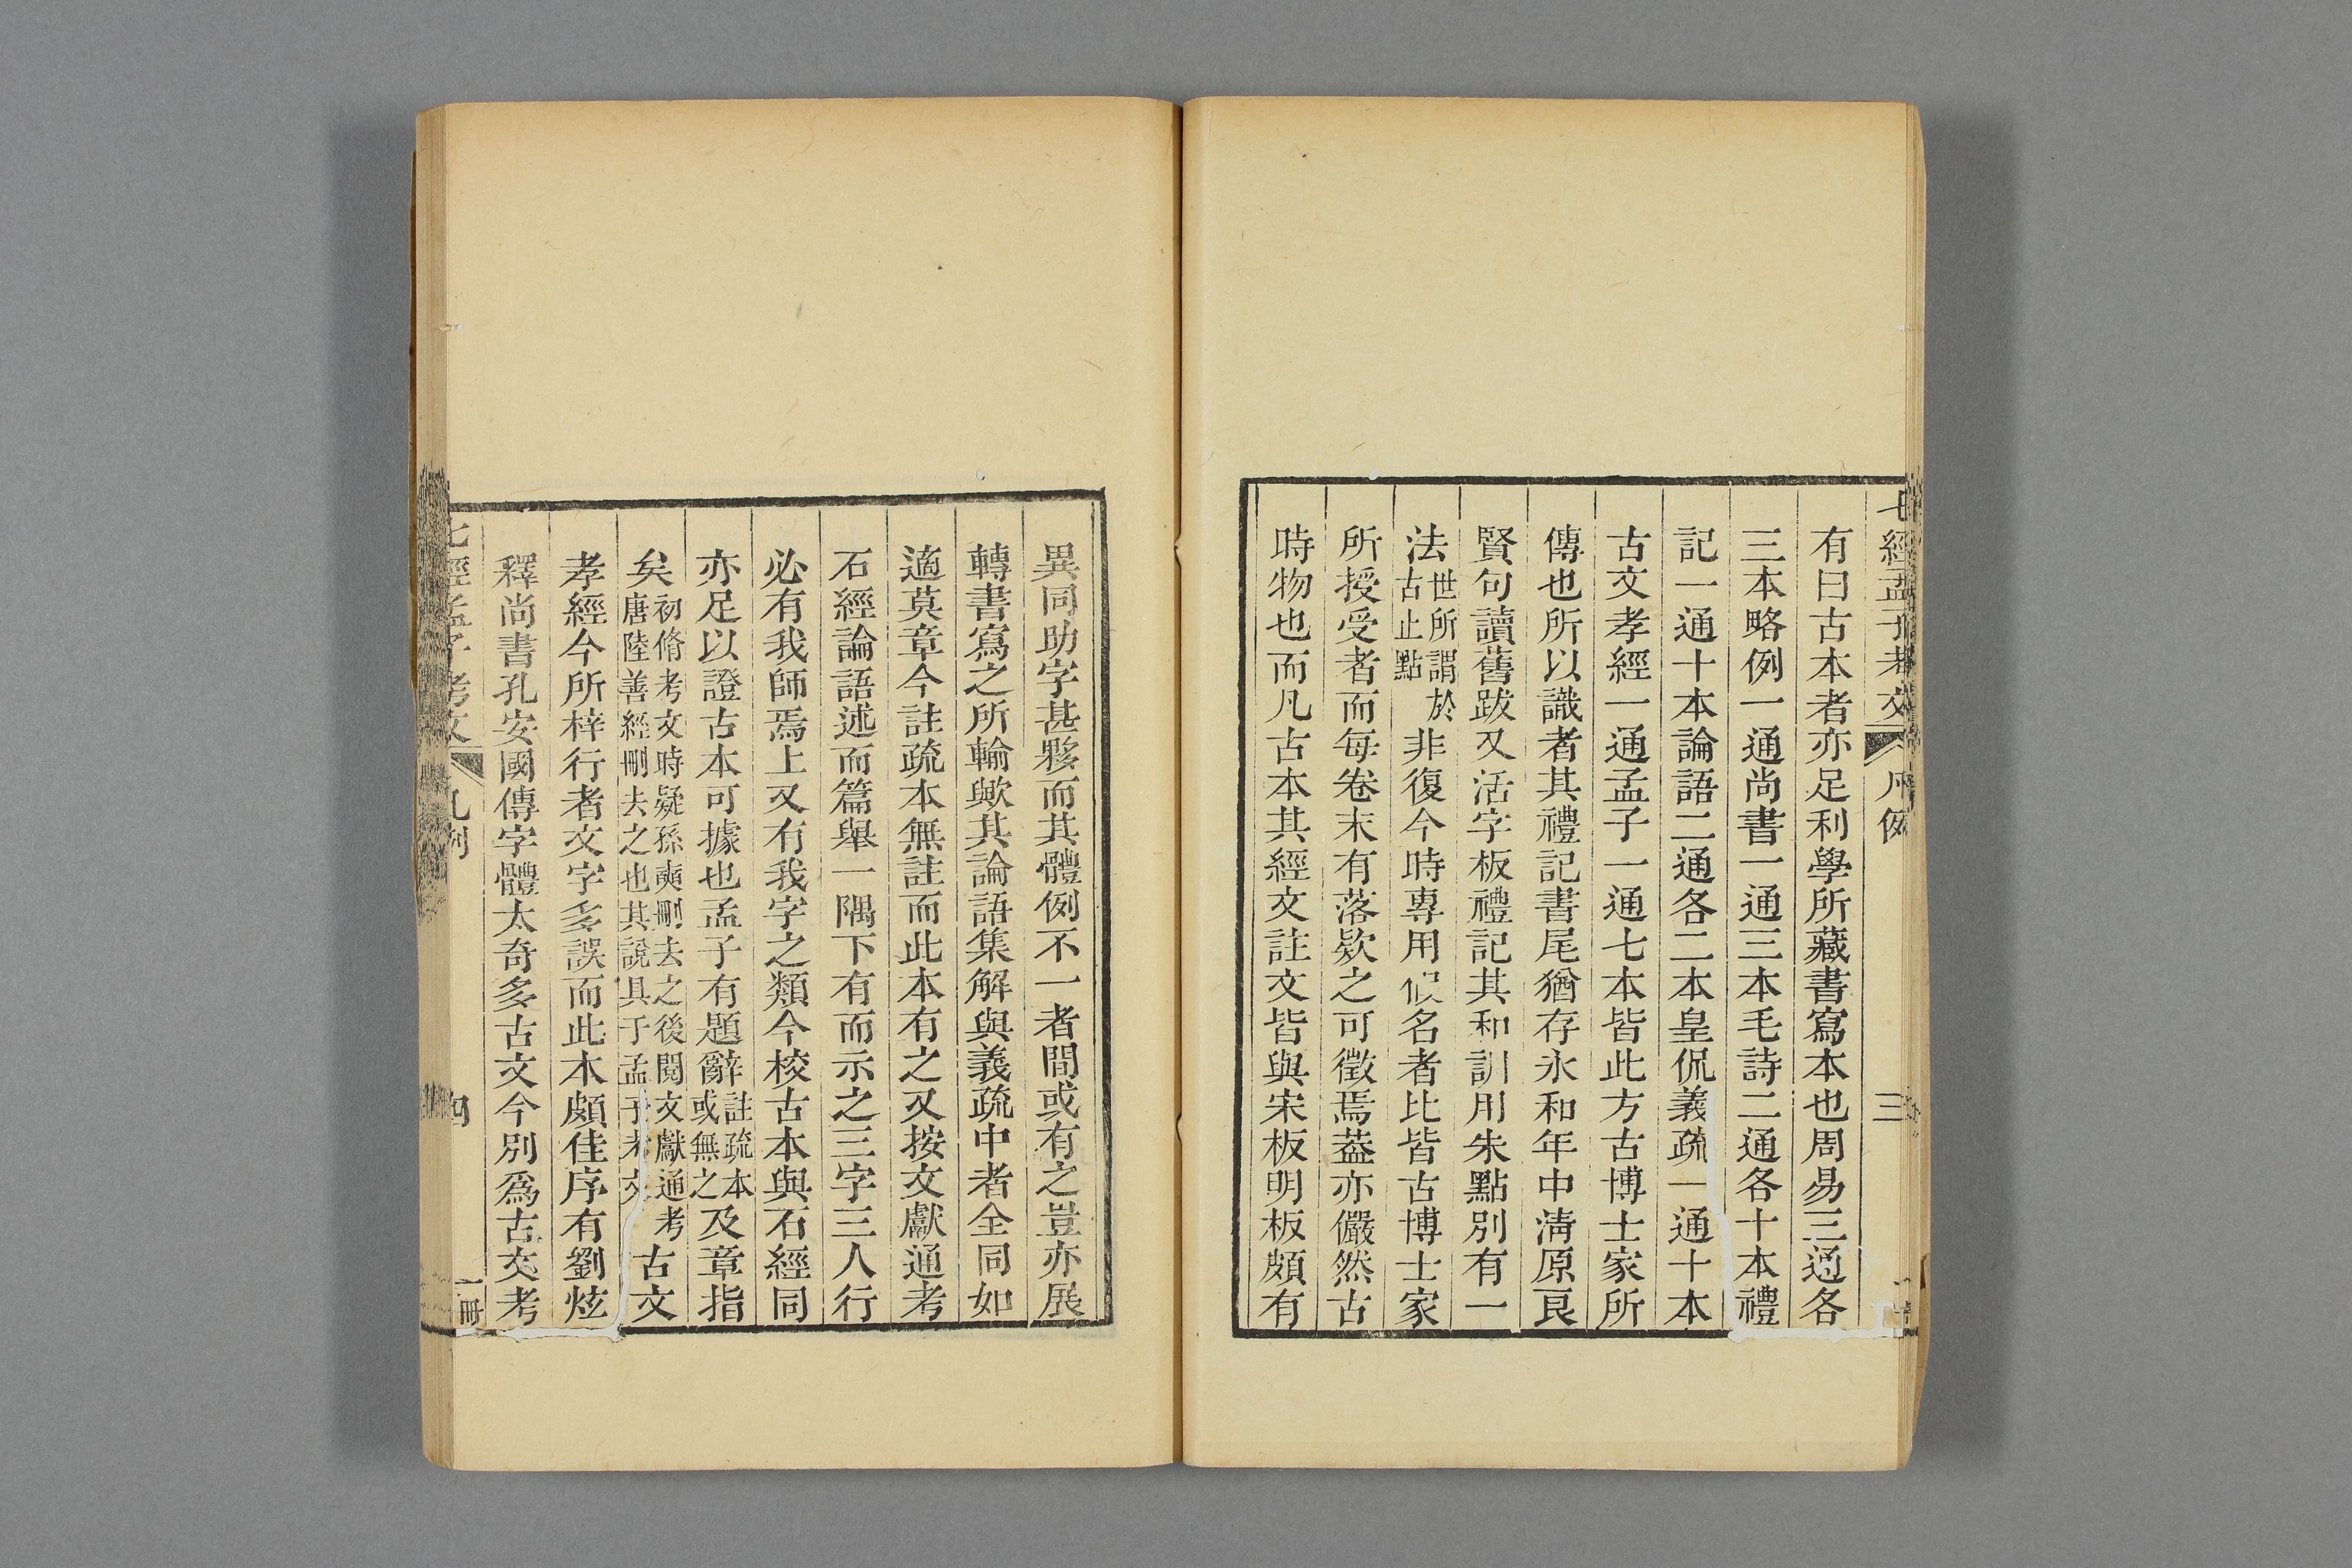 七經孟子考文 凡例 三
有曰古本者亦足利學所藏書寫本也周易三通各
三本略例一通尚書一通三本毛詩二通各十本禮
記一通十本論語二通各二本皇侃義疏一通十本
古文孝經一通孟子一通七本皆此方古博士家所
傳也所以識者其禮記書尾猶存永和年中淸原良
賢句讀舊跋又活字板禮記其和訓用朱點別有一
法世所謂於古止點非復今時專用假名者比皆古博士家
所授受者而每卷末有落欵之可徵焉葢亦儼然古
時物也而凡古本其經文註文皆與宋板明板頗有
異同助字甚夥而其體例不一者間或有之豈亦展
轉書寫之所輸歟其論語集解與義疏中者全同如
適莫章今註疏本無註而此本有之又按文獻通考
石經論語述而篇舉一隅下有而示之三字三人行
必有我師焉上又有我字之類今校古本與石經同
亦足以證古本可據也孟子有題辭註疏本或無之及章指
矣初脩考文時疑孫奭刪去之後閱文獻通考唐陸善經刪去之也其說具于孟子考文古文
孝經今所梓行者文字多誤而此本頗佳序有劉炫
釋尚書孔安國傳字體太奇多古文今別爲古文考
七經孟子考文 凡例 四 一冊